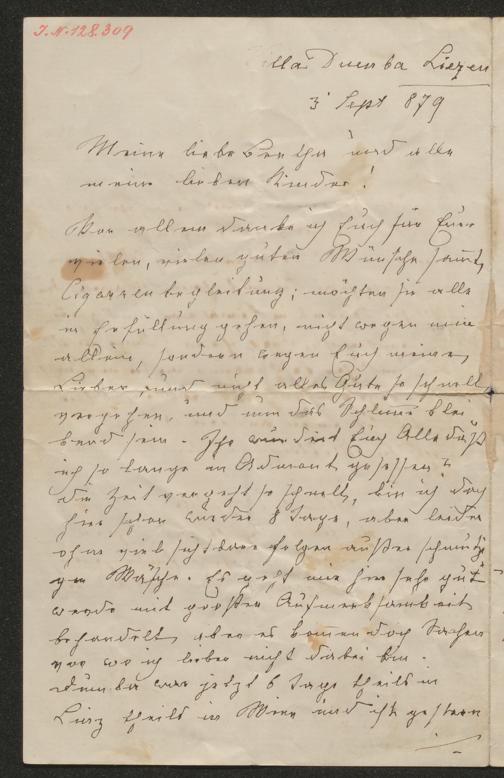 I.N. 128.309
Villa Dumba Liezen
3 Sept 879
Meine liebe Bertha und alle
meine lieben Kinder!
Vor allem danke ich Euch für Eure
vielen, vielen guten Wünsche sammt
Cigarrenbegleitung; möchten sie alle
in Erfüllung gehen, nicht wegen mir
allein, sondern wegen Euch meine
Lieben, und nicht alles Gute so schnell
vergehen, und nur das Schlimme blei
bend sein. Ihr wundert Euch Alle daß
ich so lange in Admont gesessen?
die Zeit vergeht so schnell, bin ich doch
hier schon wieder 8 Tage, aber leider
ohne viel sichtbare Folgen außer schmutzi
gen Wäsche. Es geht mir hier sehr gut
werde mit großer Aufmerksamkeit
behandelt, aber es komen doch Sachen
vor wo ich lieber nicht dabei bin.
Dumba war jetzt 6 Tage theils in
Linz theils in Wien und ist gestern